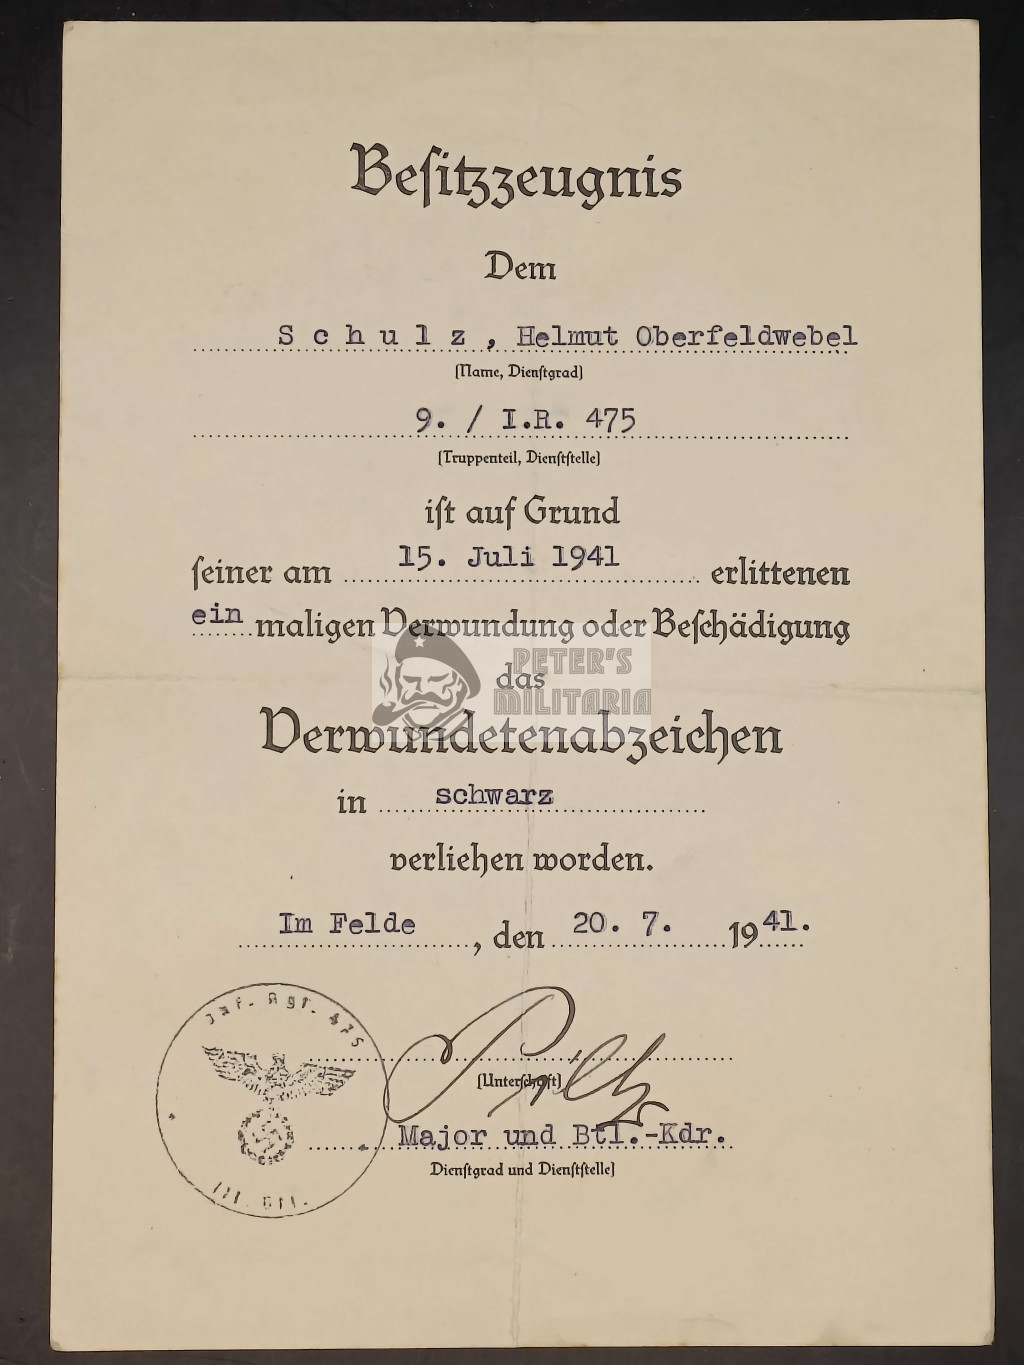 Beſitzzeugnis
Dem
Schulz, Helmut Oberfeldwebel
(Name, Dienſtgrad)
9. / I.R. 475
(Truppenteil, Dienſtſtelle)
iſt auf Grund
ſeiner am 15. Juli 1941 erlittenen
ein maligen Verwundung oder Beſchädigung
das
PETER'S
MILITARIA
Verwundetenabzeichen
in schwarz
verliehen worden.
Im Felde, den 20. 7. 1941.
Inf. Rgt. 475
(Unterſchrift)
Major und Btl.-Kdr.
Dienſtgrad und Dienſtſtelle)
III. Btl.